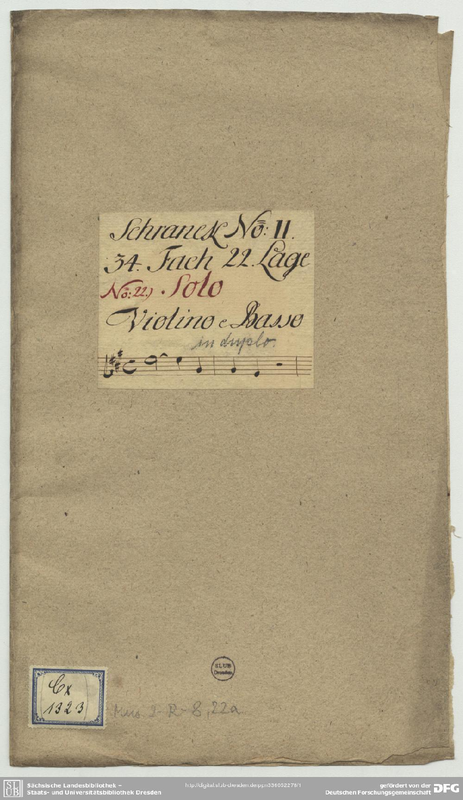 Schranck No: II.
34. Fach 22. Lage
No: 22) . Solo
Violino e Basso
in duplo.
SLUB
Dresden
Cx
1323
Mus. 2-R-8,22a
Sächsische Landesbibliothek –
Staats- und Universitätsbibliothek Dresden
gefördert von der
Deutschen Forschungsgemeinschaft
DFG